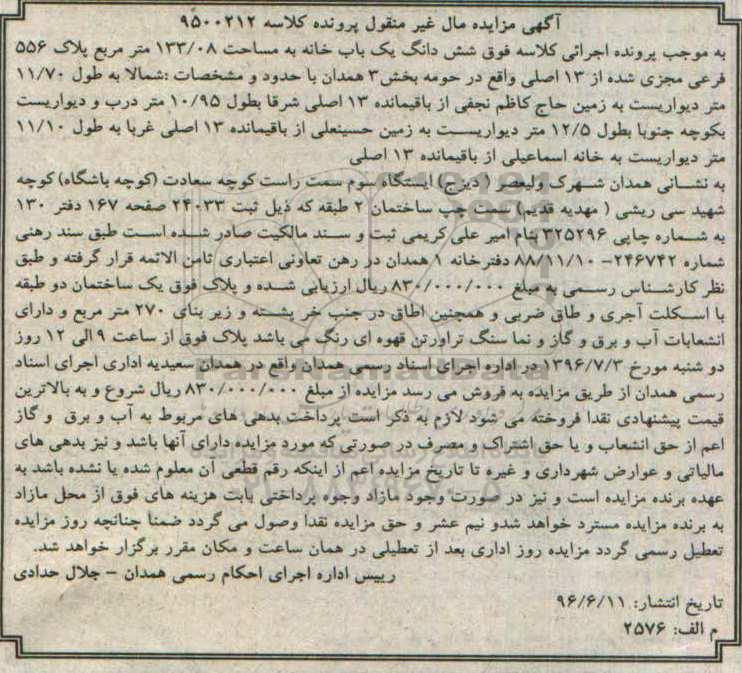 آگهی مزایده مال غیر منقول پرونده کلاسه ۹۵۰۰۲۱۲
به موجب پرونده اجرائی کلاسه فوق شش دانگ یک باب خانه به مساحت ۱۳۳/۰۸ متر مربع پلاک ۵۵۶
فرعی مجزی شده از ۱۳ اصلی واقع در حومه بخش۳ همدان با حدود و مشخصات :شمالا به طول ۱۱/۷۰
متر دیواریست به زمین حاج کاظم نجفی از باقیمانده ۱۳ اصلی شرقا بطول ۱۰/۹۵ متر درب و دیواریست
بکوچه جنوبا بطول ۱۲/۵ متر دیواریست به زمین حسینعلی از باقیمانده ۱۳ اصلی غربا به طول ۱۱/۱۰
متر دیواریست به خانه اسماعیلی از باقیمانده ۱۳ اصلی
به نشانی همدان شهرک ولیعصر ( دیزج) ایستگاه سوم سمت راست کوچه سعادت (کوچه باشگاه) کوچه
شهید سی ریشی ( مهدیه قدیم) سمت چپ ساختمان ۲ طبقه که ذیل ثبت ۲۴۰۳۳ صفحه ۱۶۷ دفتر ۱۳۰
به شماره چاپی ۳۲۵۲۹۶ بنام امیر علی کریمی ثبت و سند مالکیت صادر شده است طبق سند رهنی
شماره ۲۴۶۷۴۲- ۸۸/۱۱/۱۰ دفترخانه ۱ همدان در رهن تعاونی اعتباری ثامن الائمه قرار گرفته و طبق
نظر کارشناس رسمی به مبلغ ۸۳۰/۰۰۰/۰۰۰ ریال ارزیابی شده و پلاک فوق یک ساختمان دو طبقه
با اسکلت آجری و طاق ضربی و همچنین اطاق در جنب خر پشته و زیر بنای ۲۷۰ متر مربع و دارای
انشعابات آب و برق و گاز و نما سنگ تراورتن قهوه ای رنگ می باشد پلاک فوق از ساعت ۹ الی ۱۲ روز
دو شنبه مورخ ۱۳۹۶/۷/۳ در اداره اجرای اسناد رسمی همدان واقع در همدان سعیدیه اداری اجرای اسناد
رسمی همدان از طریق مزایده به فروش می رسد مزایده از مبلغ ۸۳۰/۰۰۰/۰۰۰ ریال شروع و به بالاترین
قیمت پیشنهادی نقدا فروخته می شود لازم به ذکر است پرداخت بدهی های مربوط به آب و برق و گاز
اعم از حق انشعاب و یا حق اشتراک و مصرف در صورتی که مورد مزایده دارای آنها باشد و نیز بدهی های
مالیاتی و عوارض شهرداری و غیره تا تاریخ مزایده اعم از اینکه رقم قطعی آن معلوم شده یا نشده باشد به
عهده برنده مزایده است و نیز در صورت وجود مازاد وجوه پرداختی بابت هزینه های فوق از محل مازاد
به برنده مزایده مسترد خواهد شدو نیم عشر و حق مزایده نقدا وصول می گردد ضمنا چنانچه روز مزایده
تعطیل رسمی گردد مزایده روز اداری بعد از تعطیلی در همان ساعت و مکان مقرر برگزار خواهد شد.
رییس اداره اجرای احکام رسمی همدان - جلال حدادی
تاریخ انتشار: ۹۶/۶/۱۱
م الف: ۲۵۷۶
ParsNamadData